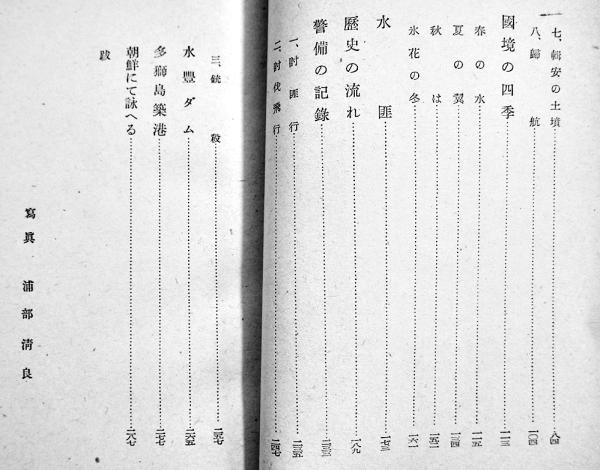 七、輯安の土墳……八四
八、歸航……一〇四
國境の四季……一一三
春の水……一一五
夏の翼……一三四
秋は……一五一
氷花の冬……一六一
水匪……一七三
歷史の流れ……一八九
警備の記錄……二三三
一、討匪行……二三五
二、討伐飛行……二四七
三、銃殺……二五七
水豐ダム……二六五
多獅島築港……二七七
朝鮮にて詠へる……二八七
跋
寫眞 浦部清良